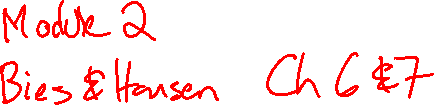 Module 2
Bies & Hansen Ch 6 & 7